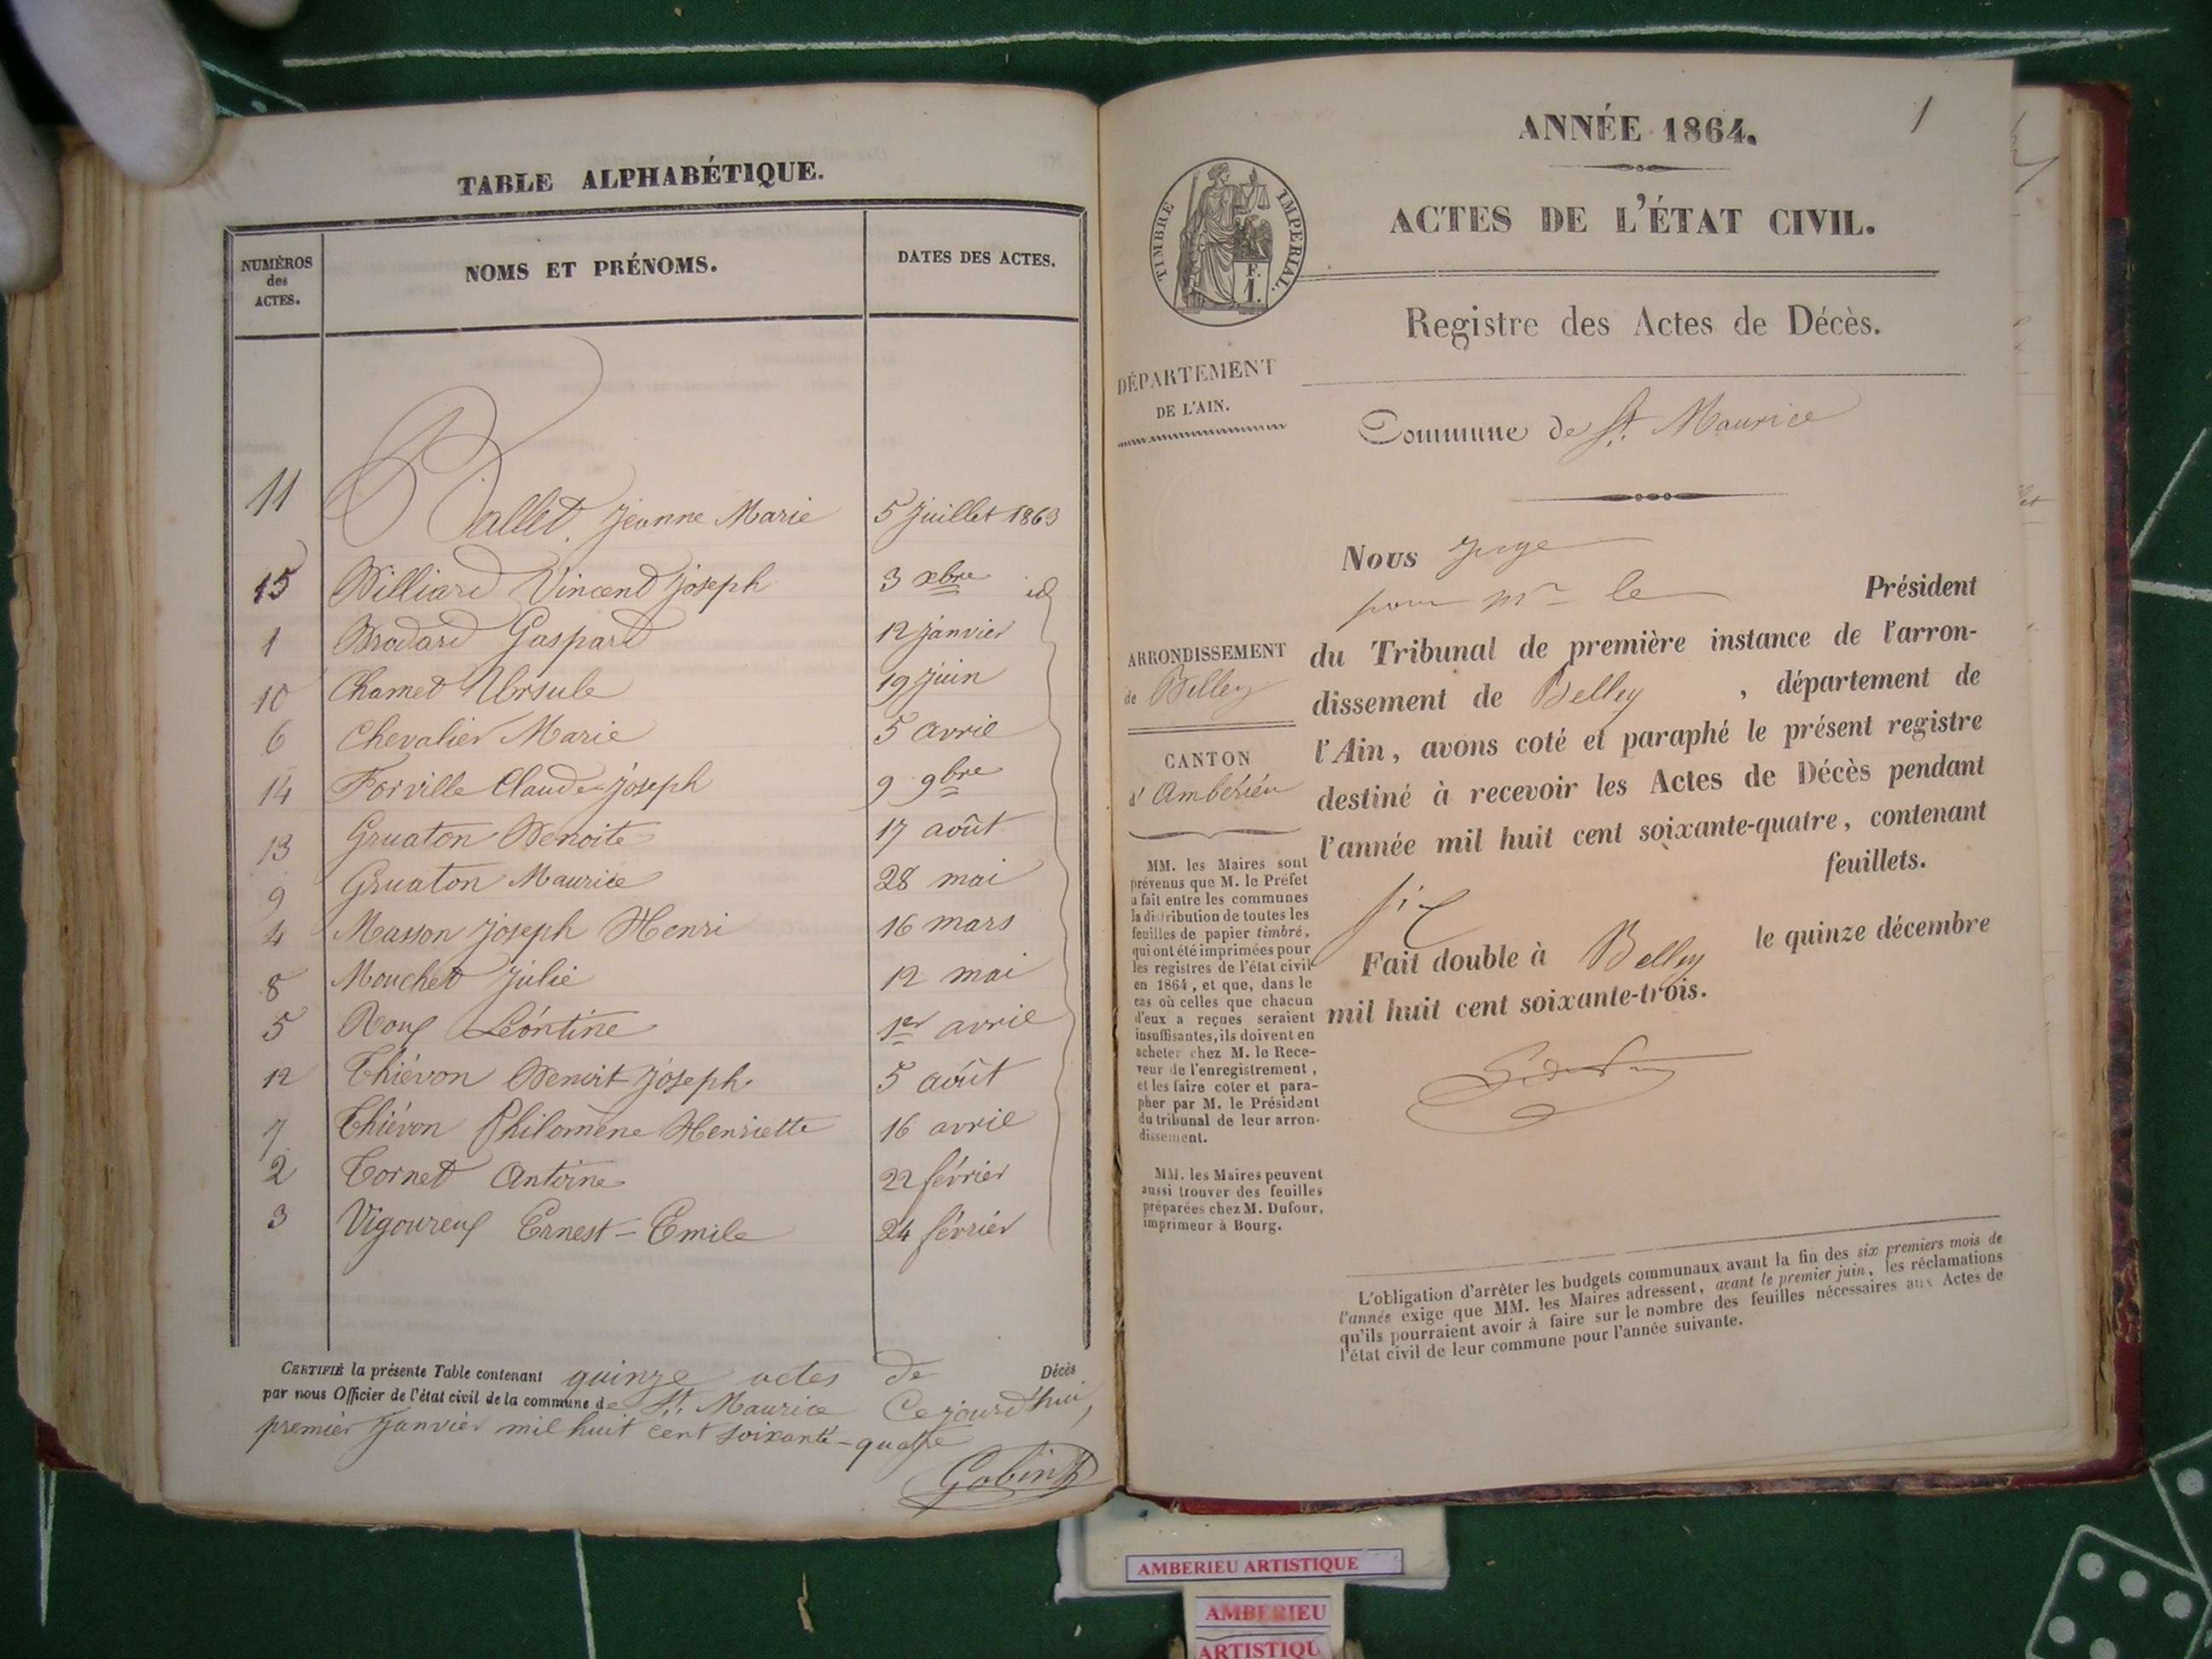 TABLE ALPHABÉTIQUE.
NUMÉROS des ACTES. NOMS ET PRÉNOMS. DATES DES ACTES.
11 Ballet Jeanne Marie 5 Juillet 1863
15 Billiard Vincent Joseph 3 xbre id
1 Brodard Gaspard 12 janvier
10 Chamet Ursule 19 juin
6 Chevalier Marie 5 avril
14 Forville Claude-Joseph 9 9bre
13 Gruaton Benoite 17 août
9 Gruaton Maurice 28 mai
4 Masson Joseph Henri 16 mars
8 Mouchet Julie 12 mai
5 Roux Léontine 1er avril
12 Thiévon Benoit Joseph 5 août
7 Thiévon Philomène Henriette 16 avril
2 Tornet Antoine 22 février
3 Vigoureux Ernest-Emile 24 février
CERTIFIÉ la présente Table contenant quinze actes de Décès
par nous Officier de l'état civil de la commune de St. Maurice Ce jourd'hui,
premier Janvier mil huit cent soixante-quatre
1
ANNÉE 1864.
TIMBRE IMPÉRIAL.
F.
1.
ACTES DE L'ÉTAT CIVIL.
Registre des Actes de Décès.
DÉPARTEMENT
DE L'AIN.
Commune de St. Maurice
Nous Juge
pour Mr le Président
du Tribunal de première instance de l'arron-
dissement de Belley, département de
l'Ain, avons coté et paraphé le présent registre
destiné à recevoir les Actes de Décès pendant
l'année mil huit cent soixante-quatre, contenant
six feuillets.
Fait double à Belley le quinze décembre
mil huit cent soixante-trois.
ARRONDISSEMENT
de Belley
CANTON
d'Ambérieu
MM. les Maires sont
prévenus que M. le Préfet
a fait entre les communes
la distribution de toutes les
feuilles de papier timbré,
qui ont été imprimées pour
les registres de l'état civil
en 1864, et que, dans le
cas où celles que chacun
d'eux a reçues seraient
insuffisantes, ils doivent en
acheter chez M. le Rece-
veur de l'enregistrement,
et les faire coter et para-
pher par M. le Président
du tribunal de leur arron-
dissement.
MM. les Maires peuvent
aussi trouver des feuilles
préparées chez M. Dufour,
imprimeur à Bourg.
L'obligation d'arrêter les budgets communaux avant la fin des six premiers mois de
l'année exige que MM. les Maires adressent, avant le premier juin, les réclamations
qu'ils pourraient avoir à faire sur le nombre des feuilles nécessaires aux Actes de
l'état civil de leur commune pour l'année suivante.
AMBERIEU ARTISTIQUE
AMBERIEU
ARTISTIQU